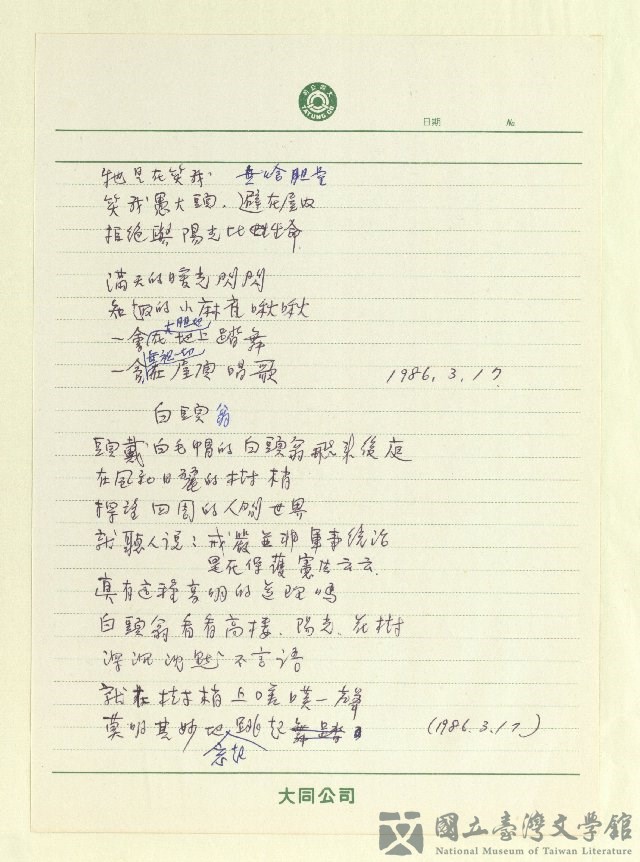 大同公司
TATUNG CO.
日期 No
牠是在笑我 無啥胆量
笑我愚大頭,避在屋內
拒絕與陽光比生命
滿天的暖光閃閃
知恥的小麻雀啾啾
一會在大胆地地上踏舞
一會在屋頂唱歌
1986.3.17
白頭翁
頭戴白毛帽的白頭翁飛來後庭
在風和日麗的樹梢
探望四周的人間世界
就聽人说:戒嚴並非軍事統治
是在保護憲法云云
真有这種高明的道理嗎
白頭翁看看高楼、陽光、花樹
深沉沈默不言語
就在樹梢上噗一聲
莫明其妙地跳起舞
(1986.3.17.)
大同公司
國立臺灣文學館
National Museum of Taiwan Literature